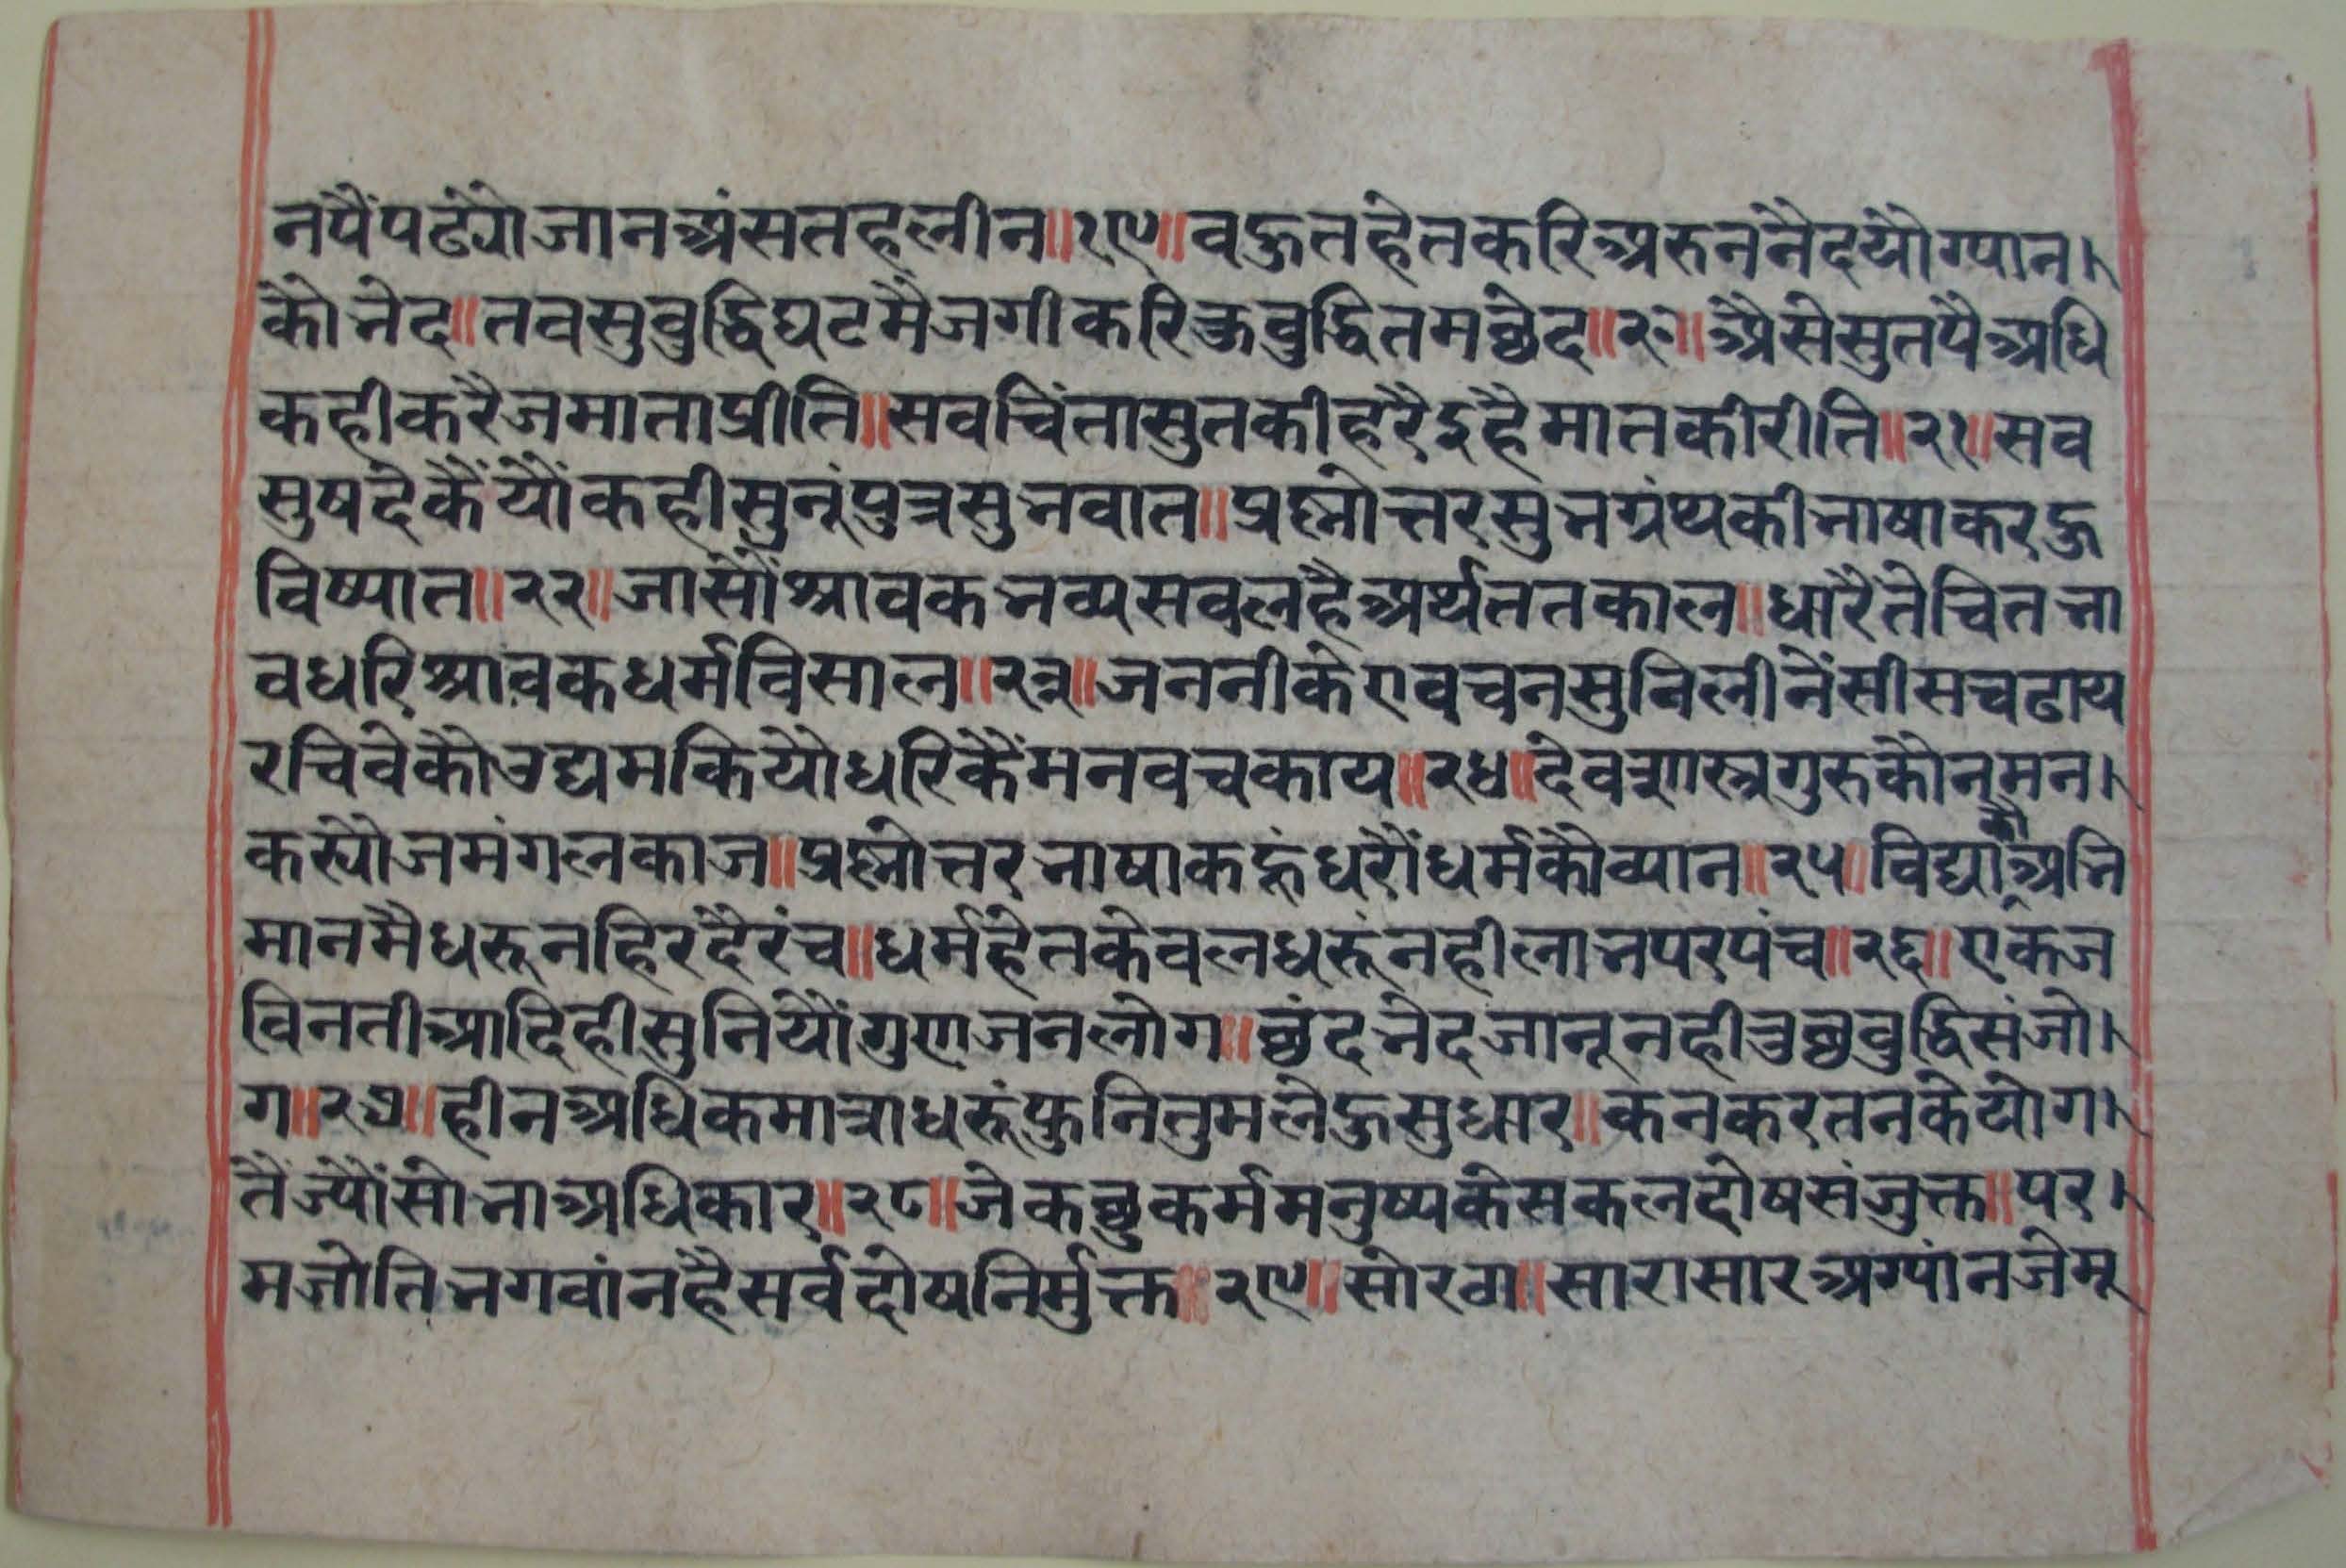 नपैंपढेंगेजानअंसतहलीन॥१९॥वहुतहेतकरिअरुननैदयौग्यान।
कौभेद॥तवसुवुद्धिघटमैंजगीकरिकुवुद्धितमछेद॥२०॥अैसेसुतपैअधि
कहीकरैजमाताप्रीति॥सवचिंतासुतकीहरैइहैमातकीरीति॥२१॥सव
सुषदेकैंयौंकहीसुनूंपुत्रसुभवात॥प्रश्नोत्तरसुभग्रंथकीभाषाकरहु
विष्यात॥२२॥जासौंश्रावकभव्यसवलहैअर्थततकाल॥धारैतेचितभा
वधरिश्रावकधर्मविसाल॥२३॥जननीकेएवचनसुनिलीनेंसीसचढाय
रचिवेकौउद्यमकियौधरिकैंमनवचकाय॥२४॥देवशास्त्रगुरुकौनमन।
कर्यौजमंगलकाज॥प्रश्नोत्तरभाषाकहूंधरौंधर्मकौव्यान॥२५॥विद्याकौअभि
मानमैधरूनहिरदैरंच॥धर्महेतकेवलधरूंनहीलाभपरपंच॥२६॥एकज
विनतीआदिहीसुनियौंगुणजनलोग॥छंदभेदजानूनहीतुछवुद्धिसंजो।
ग॥२७॥हीनअधिकमात्राधरूंफुनितुमलेहुसुधार॥कनकरतनकेयोग।
तैंज्यौंसोभाअधिकार॥२८॥जेकछुकर्ममनुष्यकेसकलदोषसंजुक्त॥पर।
मजोतिभगवांनहैसर्वदोषनिर्मुक्त॥२९॥सोरठा॥सारासारअग्यांनजेमू